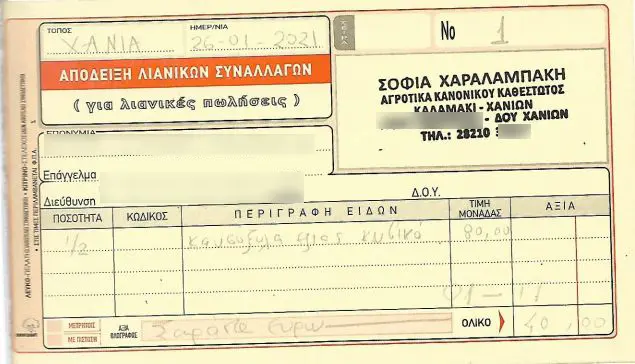 ΤΟΠΟΣ ΗΜΕΡ/ΝΙΑ
ΧΑΝΙΑ 26-01-2021
ΣΕΙΡΑ
No 1
ΑΠΟΔΕΙΞΗ ΛΙΑΝΙΚΩΝ ΣΥΝΑΛΛΑΓΩΝ
(για λιανικές πωλήσεις)
ΣΟΦΙΑ ΧΑΡΑΛΑΜΠΑΚΗ
ΑΓΡΟΤΙΚΑ ΚΑΝΟΝΙΚΟΥ ΚΑΘΕΣΤΩΤΟΣ
ΚΑΛΑΜΑΚΙ - ΧΑΝΙΩΝ
- ΔΟΥ ΧΑΝΙΩΝ
ΤΗΛ.: 28210
ΕΠΩΝΥΜΙΑ
Επάγγελμα
Διεύθυνση Δ.Ο.Υ.
ΠΟΣΟΤΗΤΑ ΚΩΔΙΚΟΣ ΠΕΡΙΓΡΑΦΗ ΕΙΔΩΝ ΤΙΜΗ ΜΟΝΑΔΑΣ ΑΞΙΑ
1/2 καυσόξυλα ελιας κυβικό 80,00
ΜΕΤΡΗΤΟΙΣ
ΜΕ ΠΙΣΤΩΣΗ
ΑΞΙΑ ΟΛΟΓΡΑΦΩΣ
Σαράντα ευρω
ΟΛΙΚΟ 40,00